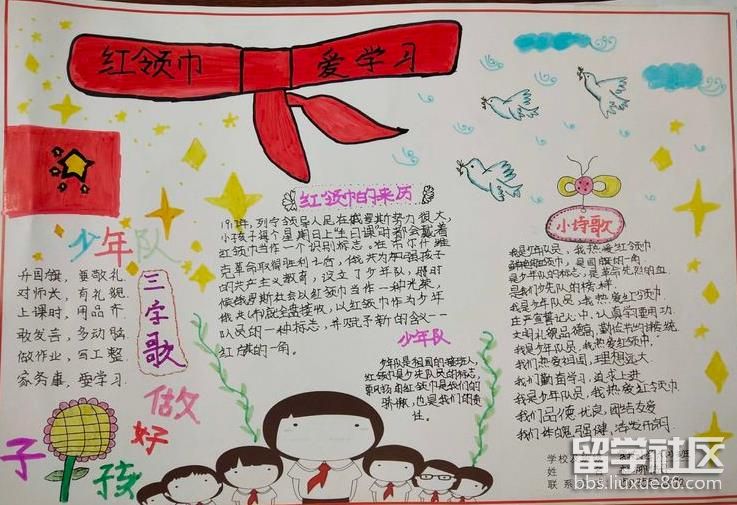 红领巾 爱学习
少年队
三字歌
升国旗，要敬礼
对师长，有礼貌
上课时，用品齐
敢发言，多动脑
做作业，写工整
家务事，要学习
做好
子孩
红领巾的来历
小孩子每个星期日上主日课时都会戴着
红领巾当作一个识别标志。在布尔什维
克革命取得胜利之后，俄共为加强孩子
的共产主义教育，设立了少年队，那时
候俄罗斯社会以红领巾当作一种光荣，
以红领巾作为少年
队员的一种标志，并赋予新的含义——
红旗的一角。
少年队
红领巾是少先队员的标志，
骄傲，也是我们的责
任。
小诗歌
我是少年队员，我热爱红领巾
鲜艳的红领巾，是国旗的一角
是少年队的标志，是革命先烈的血
是我们少先队的榜样
我是少年队员，我热爱红领巾
庄严宣誓记心中，认真学习要用功
我是少年队员，我热爱红领巾。
我们热爱祖国，理想远大
我们勤奋学习，追求上进
我是少年队员，我热爱红领巾
我们品德优良，团结友爱
我们体魄强健，活发开朗
学校
姓
联系
留学社区
bbs.liuxue86.com